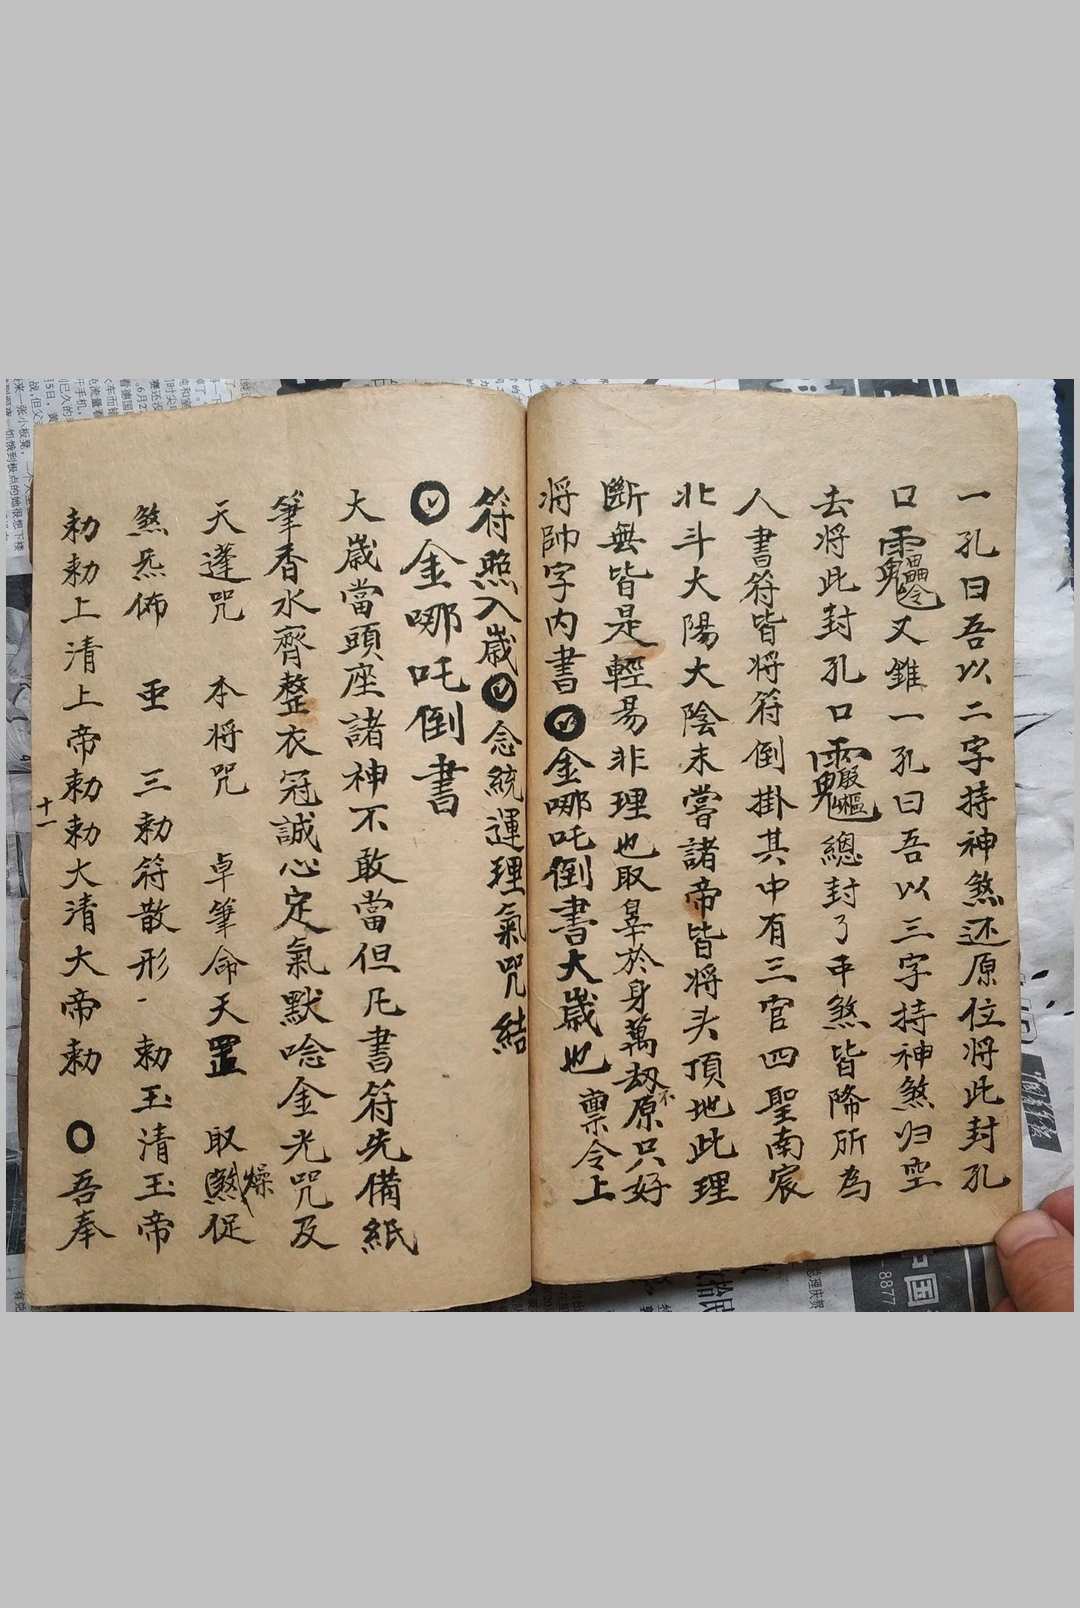 一孔曰吾以二字持神煞还原位将此封孔
口又錐一孔曰吾以三字持神煞归空
去将此封孔口總封了甲煞皆降所為
人書符皆将符倒掛其中有三官四聖南宸
北斗大陽大陰未嘗諸帝皆将头頂地此理
斷無皆是輕易非理也取辠於身萬劫不原只好
将帥字内書金哪吒倒書大歳也 稟令上
符照入歳念統運理氣咒結
金哪吒倒書
大歳當頭座諸神不敢當但凡書符先備紙
筆香水齊整衣冠誠心定氣默唸金光咒及
天蓬咒 本将咒 卓筆命天罡 取煞燥促
煞炁佈 亜 三勅符散形 勅玉清玉帝
勅勅上清上帝勅勅大清大帝勅 吾奉
十一